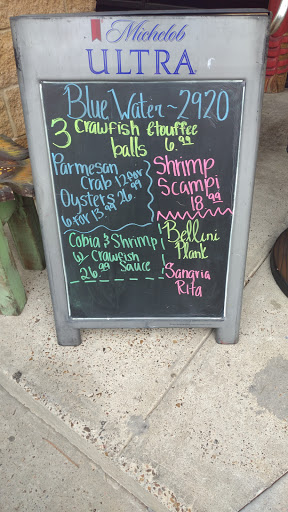 Michelob
ULTRA
Blue Water ~ 2920
3 Crawfish Etouffee
balls 6.99
Parmesan
Crab 12 for
Oysters 26.99
6 for 13.99
Shrimp
Scampi
18.99
Cobia & Shrimp
w/ Crawfish
26.99 Sauce
Bellini
Plank
Sangria
Rita